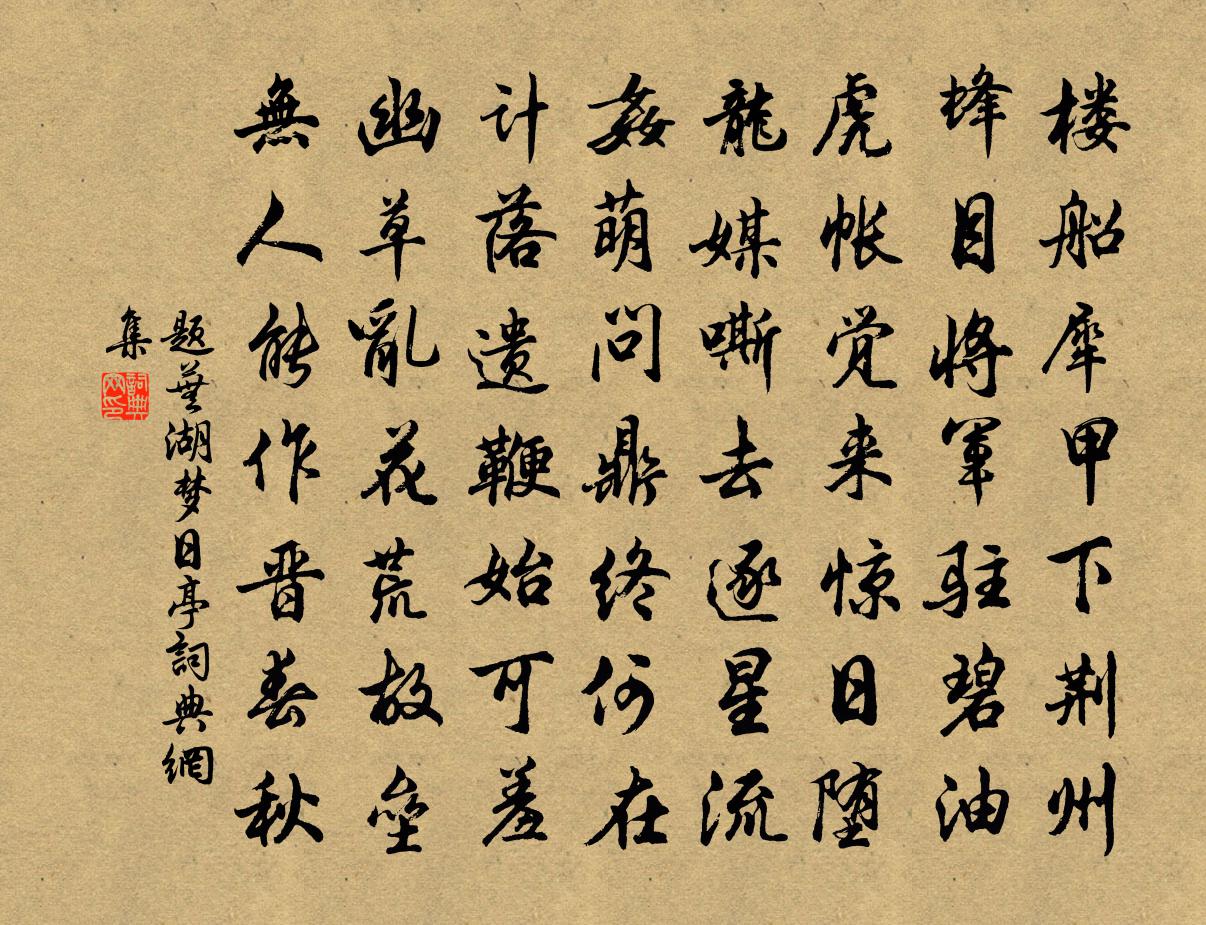 楼船犀甲下荆州
蜂目将军驻碧油
虎帐觉来惊日堕
龍媒嘶去逐星流
姦萌问鼎终何在
计落遗鞭始可羞
幽草亂花荒故垒
無人能作晋春秋
题芜湖梦日亭詞典網
集
詞典網印